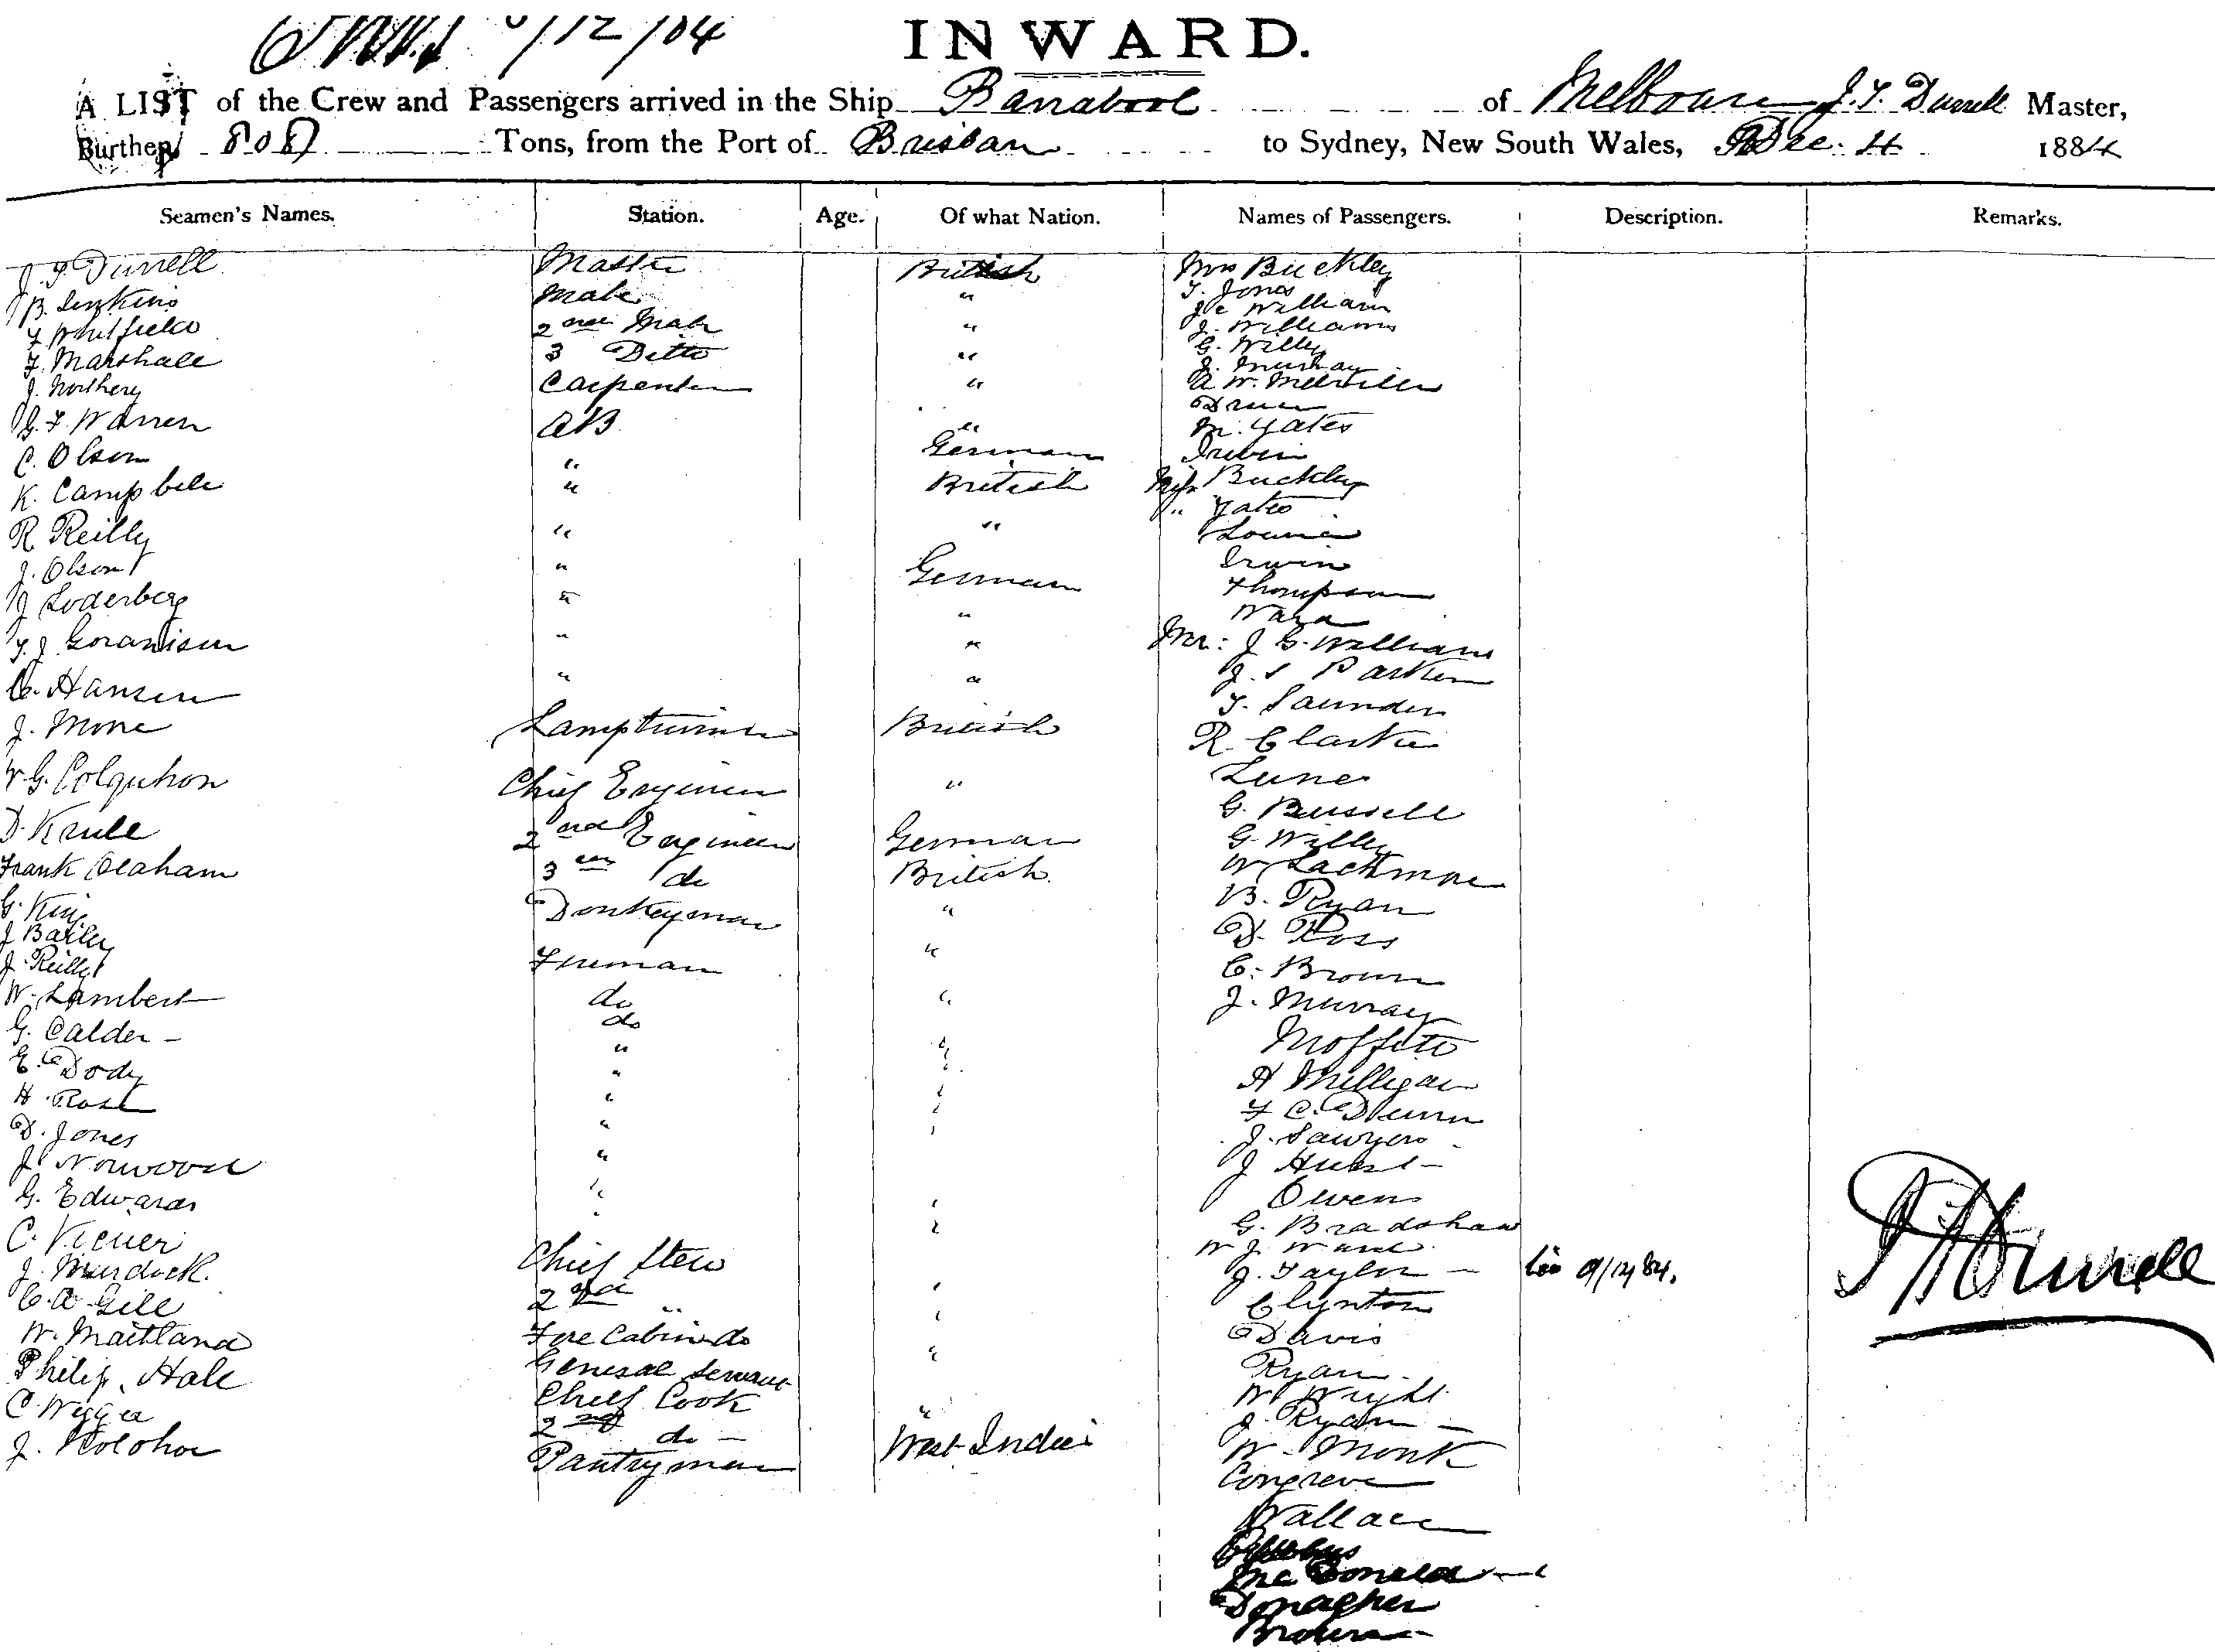 /12/84
INWARD.
A LIST of the Crew and Passengers arrived in the Ship Barrabool of Melbourne J. F. Durrell Master,
Burthen 808 Tons, from the Port of Brisbane to Sydney, New South Wales, Dec. 4 1884
Seamen's Names. Station. Age. Of what Nation. Names of Passengers. Description. Remarks.
J. F. Durrell Master British Mrs Buckley
B. Jenkins Mate " T. Jones
F Whitfield 2nd Mate " Williams
F. Marshall 3 Ditto " J. Williams
J. Northey Carpenter " G. Willy
G. F. Warren AB " J. Murray
C. Olsen " German A W. Melville
K. Campbell " British
R Reilly " " M. Yates
J. Olson " German Irwin
J Soderberg " " Miss Buckley
F. J. Goranison " " " Yates
C. Hansen " "
J. More Lamptrimmer British Irwin
W. G. Colquhon Chief Engineer " Thompson
D. Krull 2nd Engineer German Ward
Frank Olaham 3rd do British Mr: J G. Williams
G. King Donkeyman " J. S Parker
J Bailey T. Saunders
J. Reilly Fireman " R. Clarke
W. Lambert do " Lune
G. Calder do G. Russell
E. Dody " " G. Willy
H. Rose " W Lackmore
D. Jones " B. Ryan
J Norwood " D. Ross
G. Edwards " C. Brown
C. Viener " J. Murray
J. Murdock. Chief Stew Moffett
C. A Gill 2nd " A Milligan
W. Maitland Fore Cabin do F C. Dunn
Philip Hall General Servant J. Sawyers
C. Wigger Chief Cook " J Hurst
J. 2nd do Owens
Pantryman West Indies G. Bradshaw
W J Ward
J. Taylor 9/12/84. J. F. Durrell
Clynton
Davis
Ryan
W Wright
J. Ryan
W. Monk
Congreve
Wallace
McDonald
Donagher
Brown